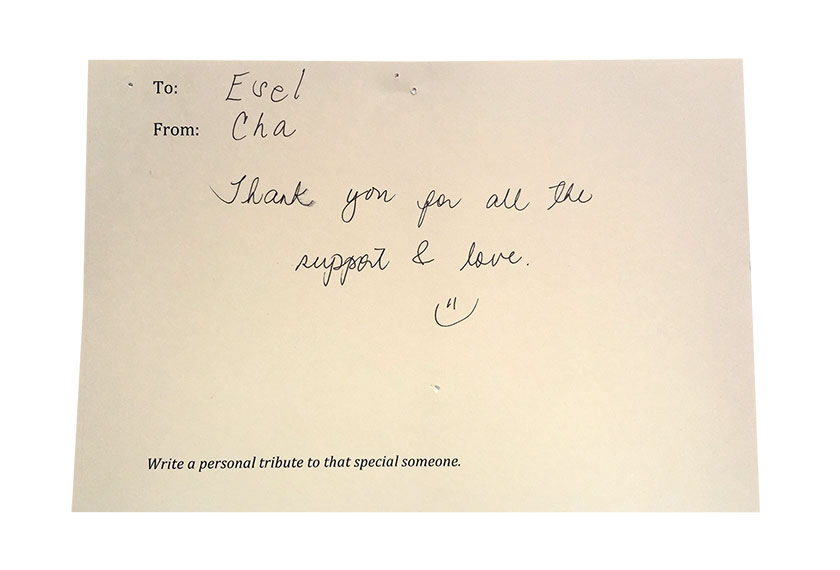 To: Esel
From: Cha
Thank you for all the
support & love.
Write a personal tribute to that special someone.